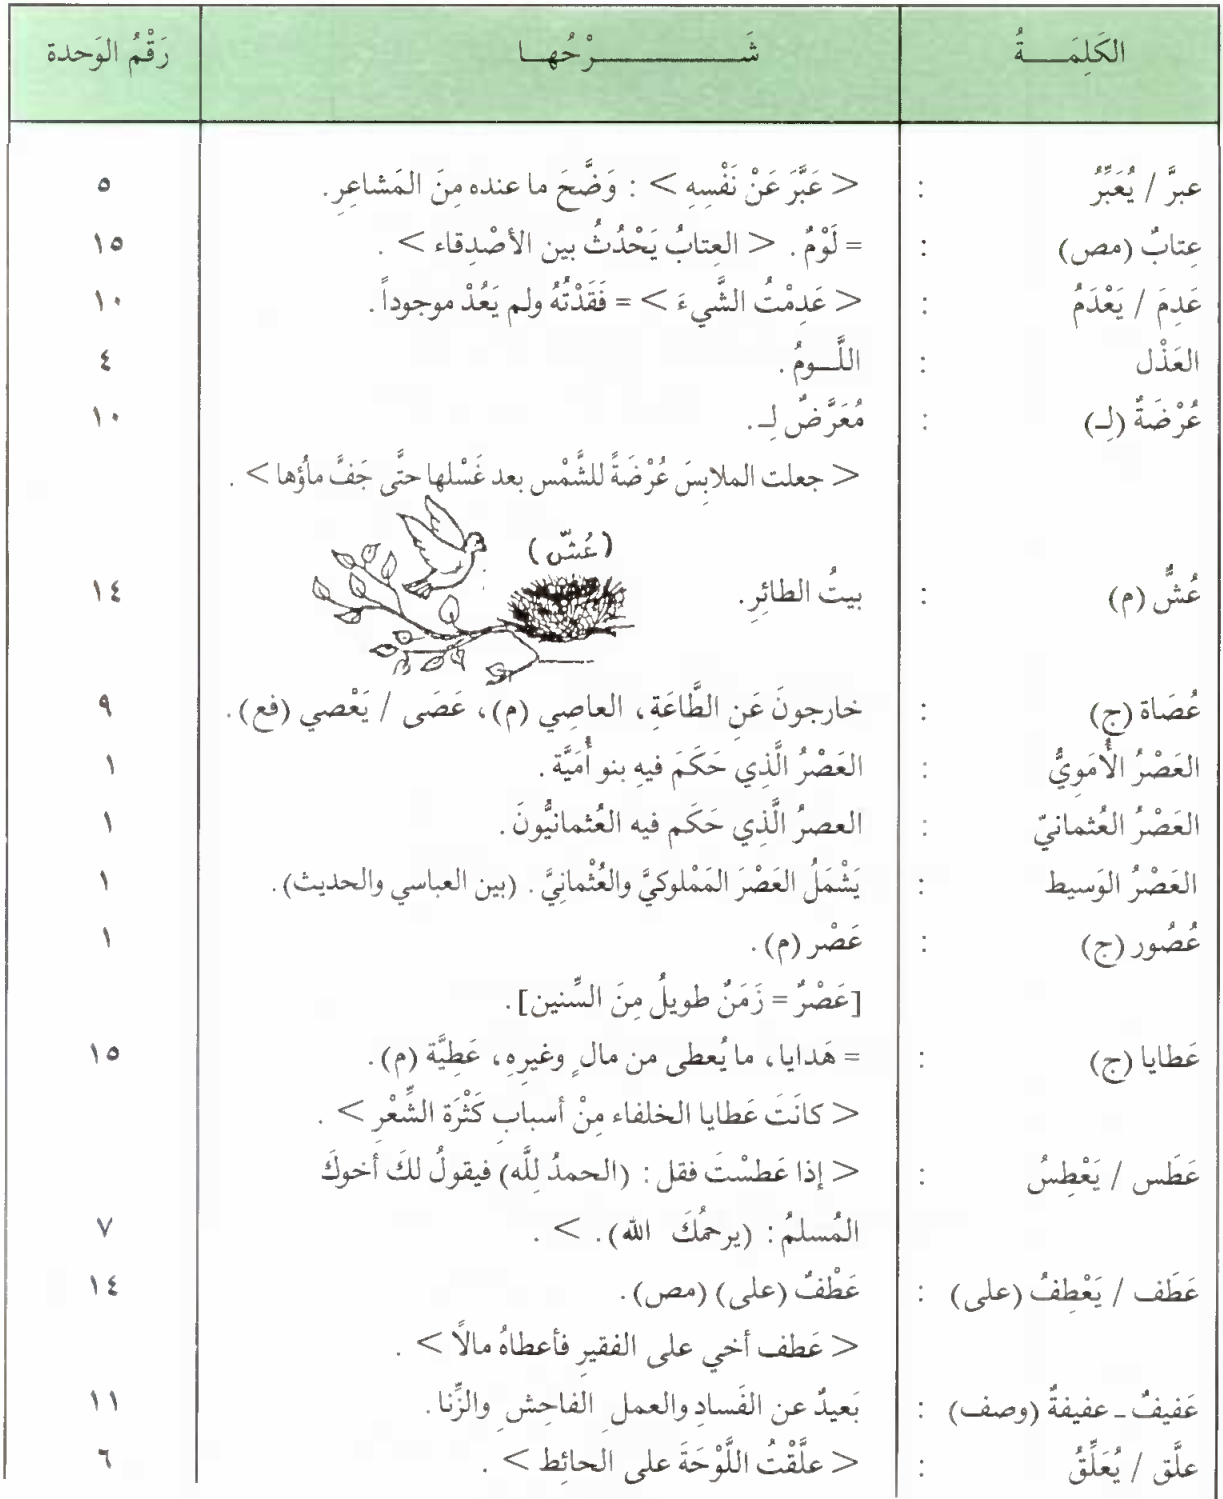 الكَلِمَـــةُ شَـــــــــرْحُهــا رَقْمُ الوَحدة
عبرَّ / يُعَبِّرُ : < عَبَّرَ عَنْ نَفْسِهِ > : وَضَّحَ ما عنده مِنَ المَشاعِرِ. ٥
عِتابٌ (مص) : = لَوْمٌ . < العِتابُ يَحْدُثُ بين الأصْدِقاء > . ١٥
عَدِمَ / يَعْدَمُ : < عَدِمْتُ الشَّيءَ > = فَقَدْتُهُ ولم يَعُدْ موجوداً . ١٠
العَذْل : اللَّــومُ . ٤
عُرْضَةٌ (لِـ) : مُعَرَّضٌ لِـ . ١٠
< جعلت الملابِسَ عُرْضَةً للشَّمْس بعد غَسْلها حتَّى جَفَّ ماؤها > .
(عُشّ)
عُشٌّ (م) : بيتُ الطائِرِ . ١٤
عُصَاة (ج) : خارجونَ عَنِ الطَّاعَةِ ، العاصِي (م) ، عَصَى / يَعْصي (فع) . ٩
العَصْرُ الأُمَوِيُّ : العَصْرُ الَّذِي حَكَمَ فيهِ بنو أُمَيَّة . ١
العَصْرُ العُثمانيّ : العصرُ الَّذِي حَكَم فيه العُثمانيُّونَ . ١
العَصْرُ الوَسيط : يَشْمَلُ العَصْرَ المَمْلوكيَّ والعُثْمانِيَّ . (بين العباسي والحديث) . ١
عُصُور (ج) : عَصْر (م) . ١
[عَصْرٌ = زَمَنٌ طويلٌ مِنَ السِّنين] .
عَطايا (ج) : = هَدايا ، ما يُعطى من مالٍ وغيرِهِ ، عَطِيَّة (م) . ١٥
< كانَتَ عَطايا الخلفاء مِنْ أسبابِ كَثْرَة الشِّعْرِ > .
عَطَس / يَعْطِسُ : < إذا عَطسْتَ فقل : (الحمدُ لِلَّه) فيقولُ لكَ أخوكَ
المُسلمُ : (يرحمُكَ الله) . > . ٧
عَطَف / يَعْطِفُ (على) : عَطْفٌ (على) (مص) . ١٤
< عَطف أخي على الفقيرِ فأعطاهُ مالًا > .
عَفيفٌ ـ عفيفةٌ (وصف) : بَعيدٌ عن الفَسادِ والعملِ الفاحِشِ والزِّنا . ١١
علَّق / يُعَلِّقُ : < علَّقْتُ اللَّوْحَةَ على الحائِط > . ٦